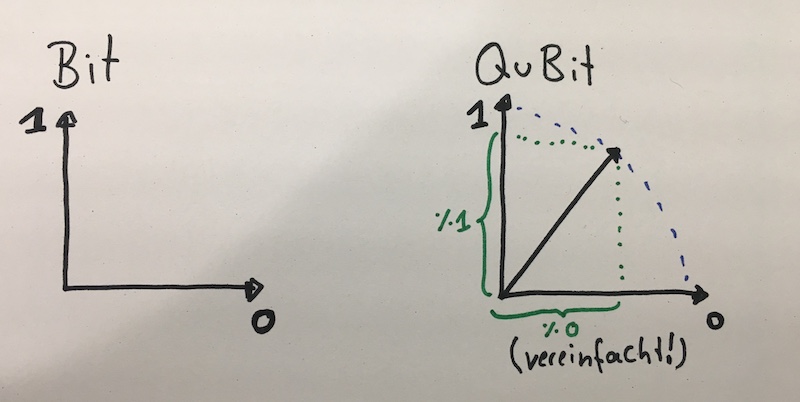 Bit
1
0
QuBit
1
%1
%0
0
(vereinfacht!)